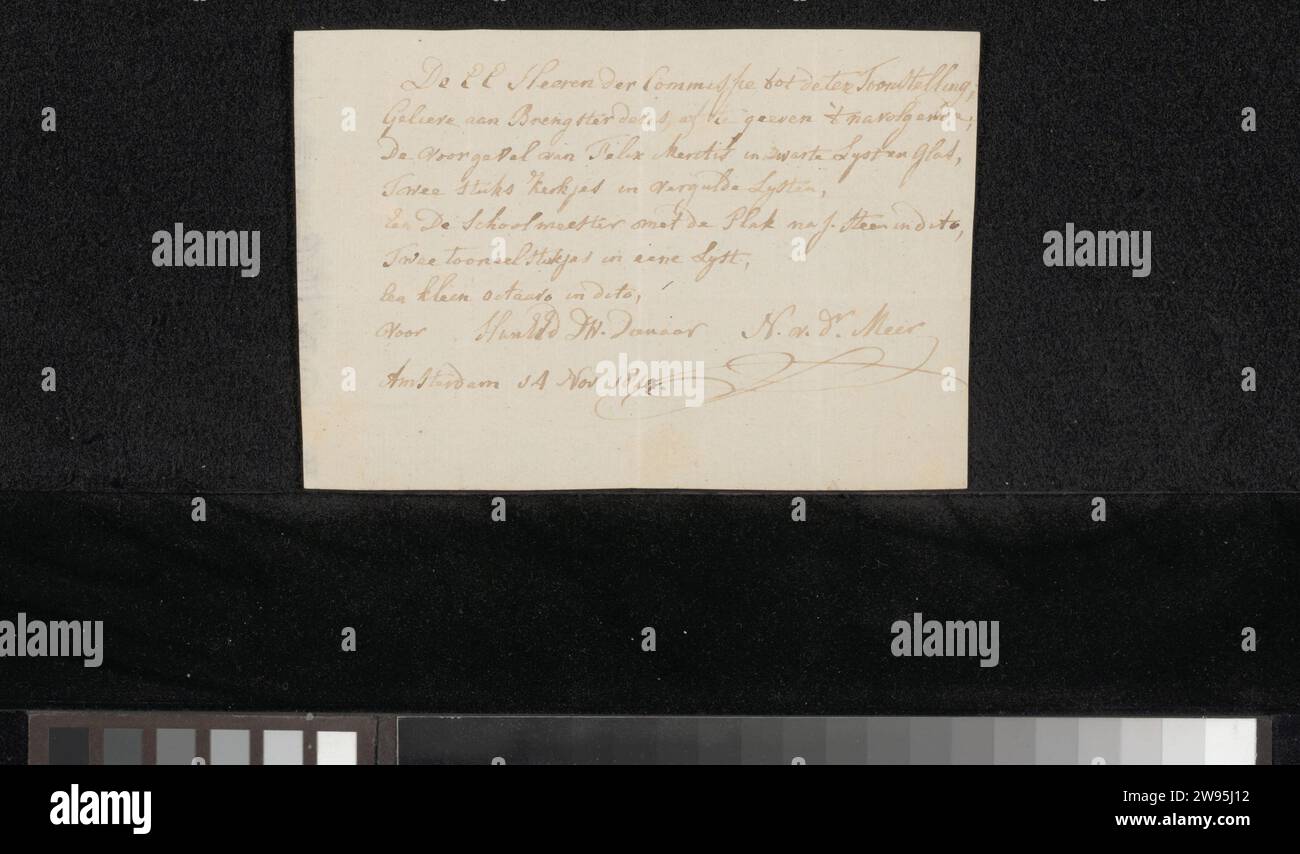 De EE Heeren der Commissie tot deter Toonstelling,
Geliere aan Brengster deses, af te geeven 't navolgende;
De voorgevel van Felix Meretis in zwarte Lyst en Glas,
Twee stuks kerkjes in vergulde Lysten,
Een De Schoolmeester met de Plak na J. Steen in dito,
Twee tooneelstukjes in eene Lyst,
Een klein octavo in dito,
voor DW. Dienaar N. v. dr Meer
Amsterdam 14 Nov
alamy
alamy
alamy
alamy
alamy
Image ID: 2W95J12
www.alamy.com